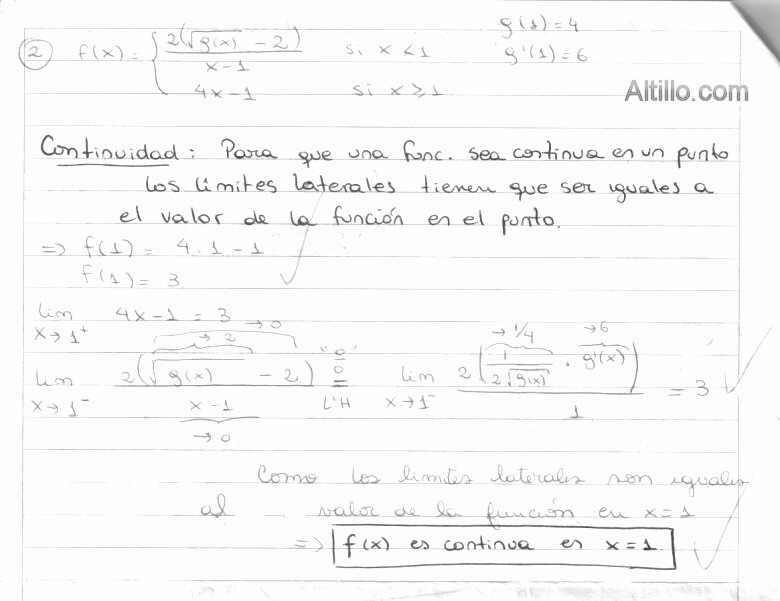 g(1)=4
② f(x) = { 2(√g(x) - 2) / x-1   si x < 1   g'(1)=6
4x-1   si x ≥ 1
Altillo.com
Continuidad: Para que una func. sea continua en un punto
los límites laterales tienen que ser iguales a
el valor de la función en el punto.
=> f(1) = 4.1-1
f(1) = 3
lim x→1⁺ 4x-1 = 3
lim x→1⁻ 2(√g(x) - 2) / x-1 "0/0" = L'H lim x→1⁻ 2(1/2√g(x) · g'(x)) / 1 = 3
→2 →0 →0 →1/4 →6
Como los limites laterales son iguales
al valor de la función en x=1
=> f(x) es continua en x=1.